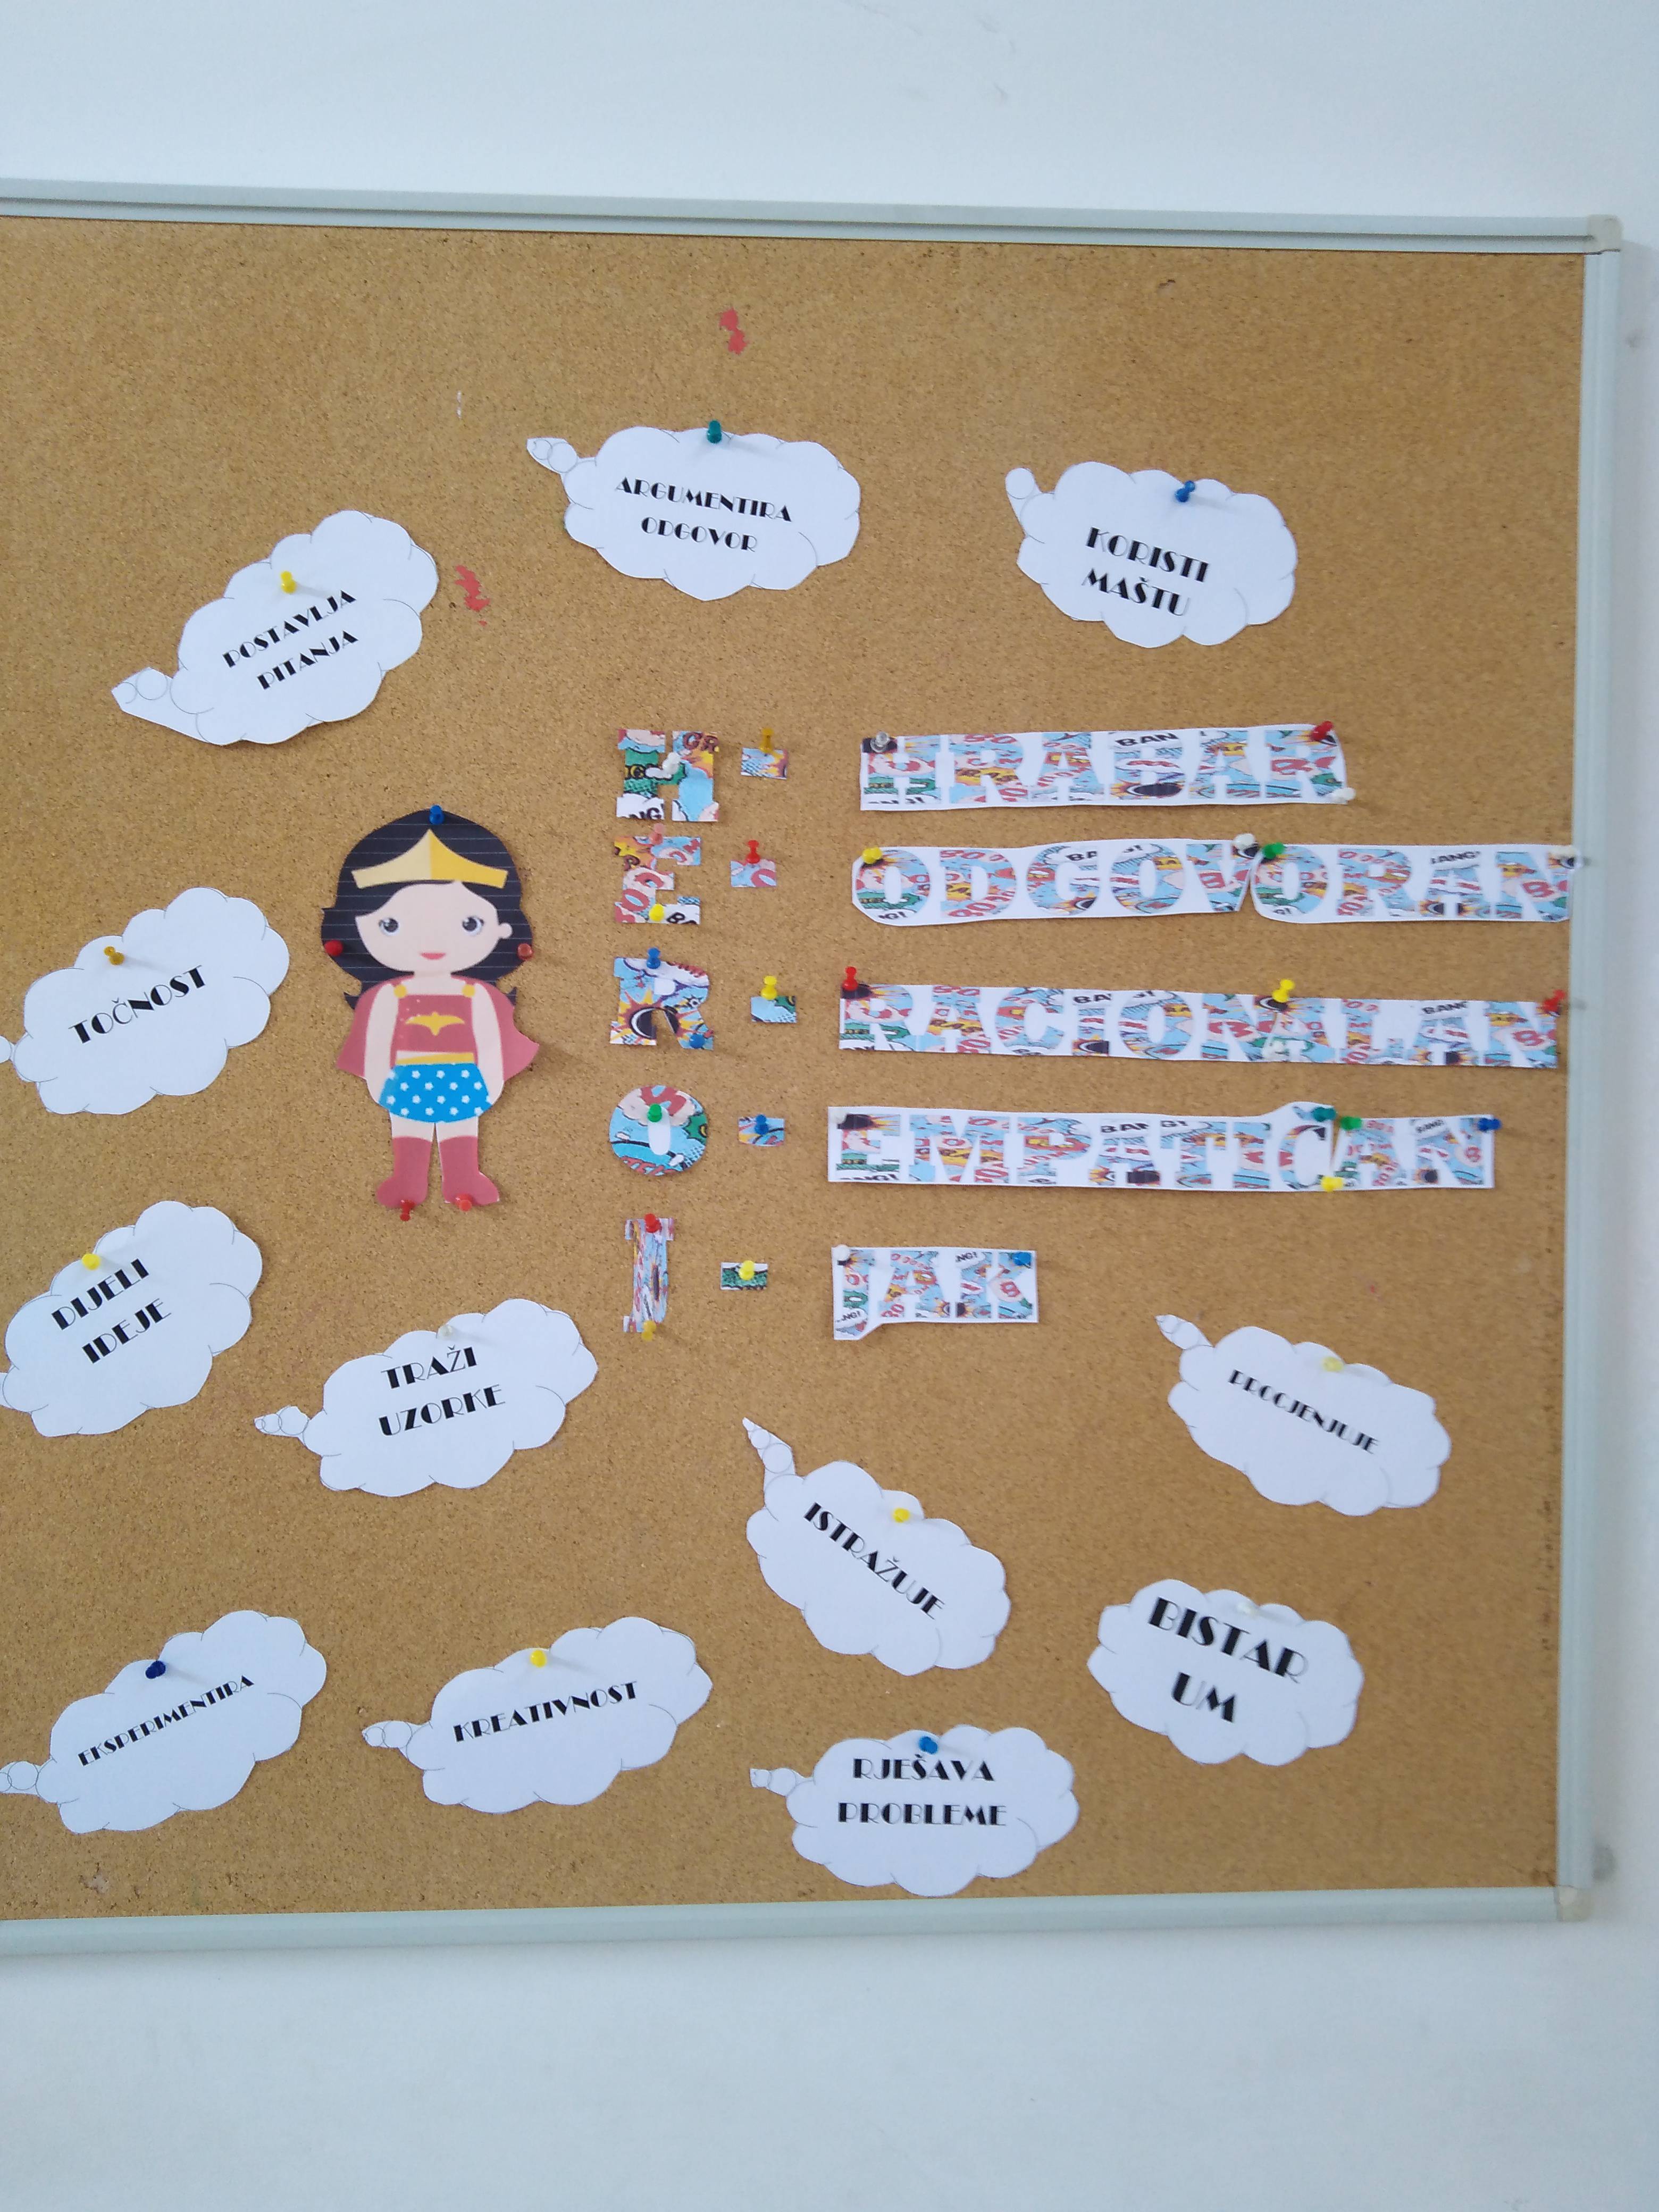 ARGUMENTIRA
ODGOVOR
KORISTI
MAŠTU
POSTAVLJA
PITANJA
H - HRABAR
E - ODGOVORAN
R - RACIONALAN
O - EMPATIČAN
J - JAK
TOČNOST
DIJELI
IDEJE
TRAŽI
UZORKE
PROCJENJUJE
ISTRAŽUJE
BISTAR
UM
EKSPERIMENTIRA
KREATIVNOST
RJEŠAVA
PROBLEME